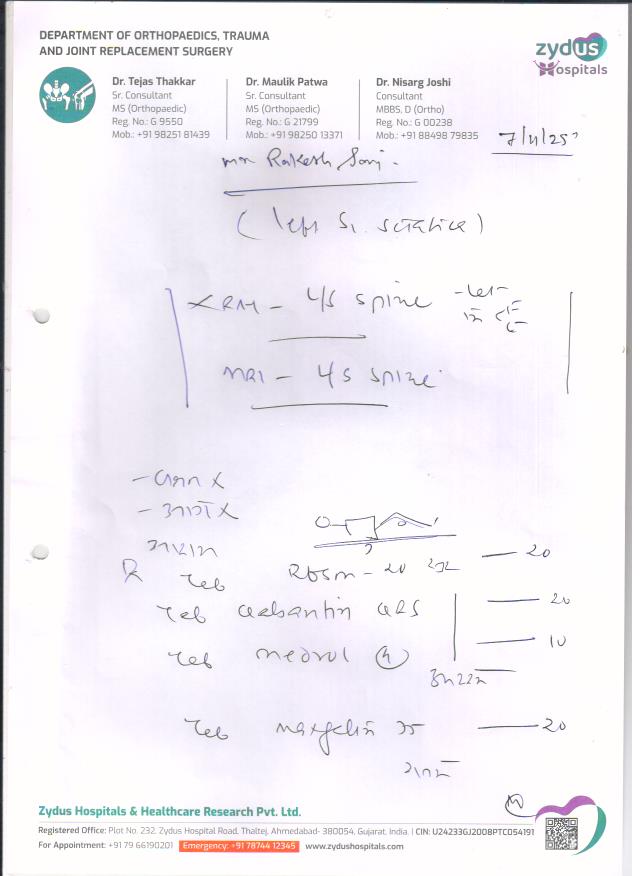 DEPARTMENT OF ORTHOPAEDICS, TRAUMA
AND JOINT REPLACEMENT SURGERY
zydus
Hospitals
Dr. Tejas Thakkar
Sr. Consultant
MS (Orthopaedic)
Reg. No.: G 9550
Mob.: +91 98251 81439
Dr. Maulik Patwa
Sr. Consultant
MS (Orthopaedic)
Reg. No.: G 21799
Mob.: +91 98250 13371
Dr. Nisarg Joshi
Consultant
MBBS, D (Ortho)
Reg. No.: G 00238
Mob.: +91 88498 79835
7/11/25
Rakesh Soni
(left S1 sciatica)
XRAY - L/S spine
MRI - L/S spine
20
Tab
Tab
20
Tab medrol 4
10
Tab
20
Zydus Hospitals & Healthcare Research Pvt. Ltd.
Registered Office: Plot No. 232, Zydus Hospital Road, Thaltej, Ahmedabad- 380054, Gujarat. India. | CIN: U24233GJ2008PTC054191
For Appointment: +91 79 66190201 Emergency: +91 78744 12345 www.zydushospitals.com